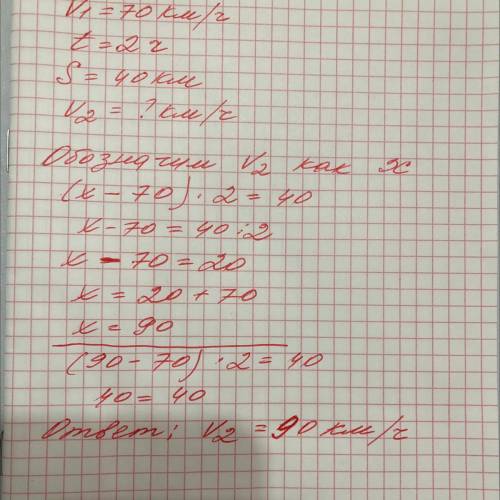 V1 = 70 км/ч
t = 2 ч
S = 40 км
V2 = ? км/ч
Обозначим V2 как x
(x - 70) · 2 = 40
x - 70 = 40 : 2
x - 70 = 20
x = 20 + 70
x = 90
(90 - 70) · 2 = 40
40 = 40
Ответ: V2 = 90 км/ч